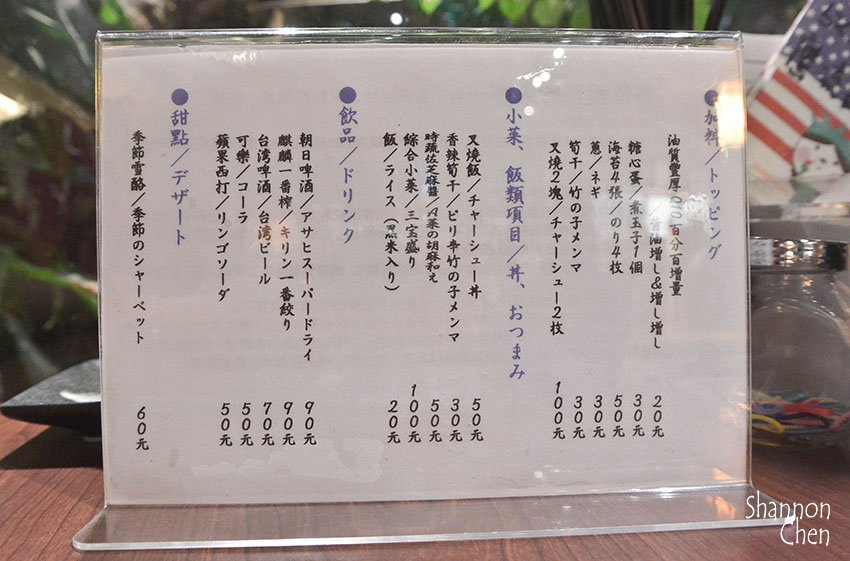 ●加料/トッピング
油質豐厚 百分百增量
背油増し&増し増し 20元
糖心蛋/煮玉子1個 30元
海苔4張/のり4枚 50元
蔥/ネギ 30元
筍干/竹の子メンマ 30元
叉燒2塊/チャーシュー2枚 100元
●小菜、飯類項目/丼、おつまみ
叉燒飯/チャーシュー丼 50元
香辣筍干/ピリ辛竹の子メンマ 30元
時蔬佐芝麻醬/A菜の胡麻和え 50元
綜合小菜/三宝盛り 100元
飯/ライス(黒米入り) 20元
●飲品/ドリンク
朝日啤酒/アサヒスーパードライ 90元
麒麟一番搾/キリン一番絞り 90元
台湾啤酒/台湾ビール 70元
可樂/コーラ 50元
蘋果西打/リンゴソーダ 50元
●甜點/デザート
季節雪酪/季節のシャーベット 60元
Shannon
Chen